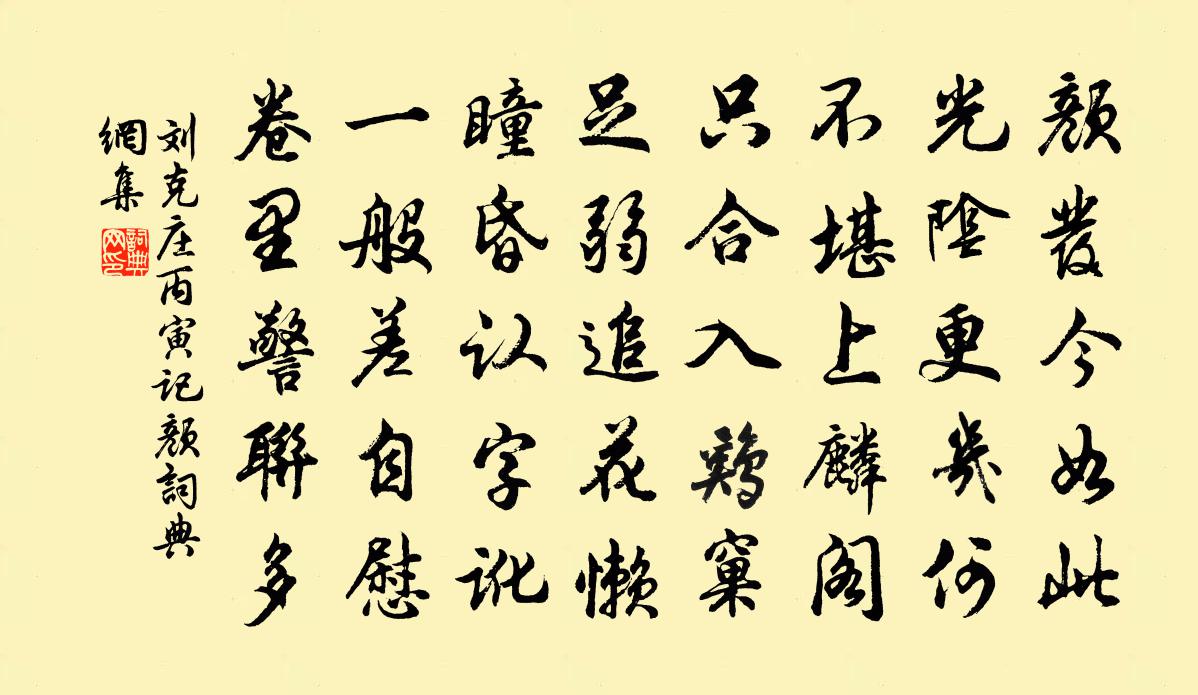 顔發今如此
光陰更幾何
不堪上麟阁
只合入鷄窠
足弱追花懒
瞳昏认字讹
一般差自慰
卷里警聯多
刘克庄丙寅记顔詞典
網集
詞典网印